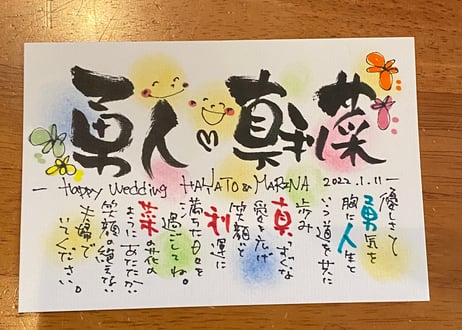 勇人 真利菜
— Happy Wedding HAYATO & MARINA 2022.1.11 —
優しさと
勇気を
胸に人生と
いう道を共に
歩み
真っすぐな
愛を
笑顔と
利運に
満ちた日々を
過ごしてね。
菜の花の
ようにあたたかい
笑顔の絶えない
夫婦で
いてください。